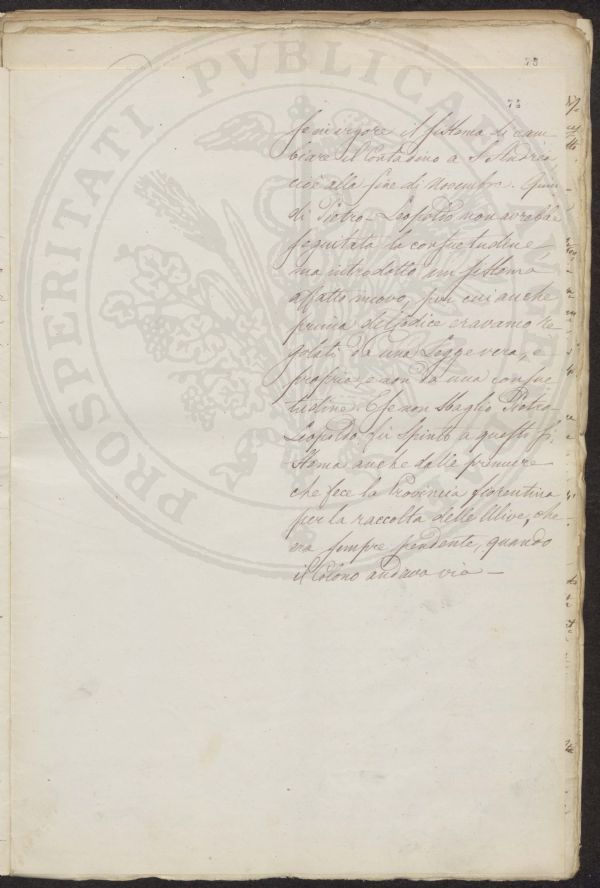 73
74
se in vigore il sistema di cam=
biare il Contadino a S. Andrea
cioè alla fine di Novembre. Quin=
di Pietro-Leopoldo non avrebbe
seguitata la consuetudine,
ma introdotto un sistema
affatto nuovo, per cui anche
prima del Codice eravamo re=
golati da una Legge vera, e
propria e non da una consue=
tudine. E se non sbaglio Pietro
Leopoldo fù spinto a questo si=
stema anche dalle premure
che fece la Provincia fiorentina
per la raccolta delle Ulive, che
era sempre pendente, quando
il Colono andava via —
PROSPERITATI PVBLICAE